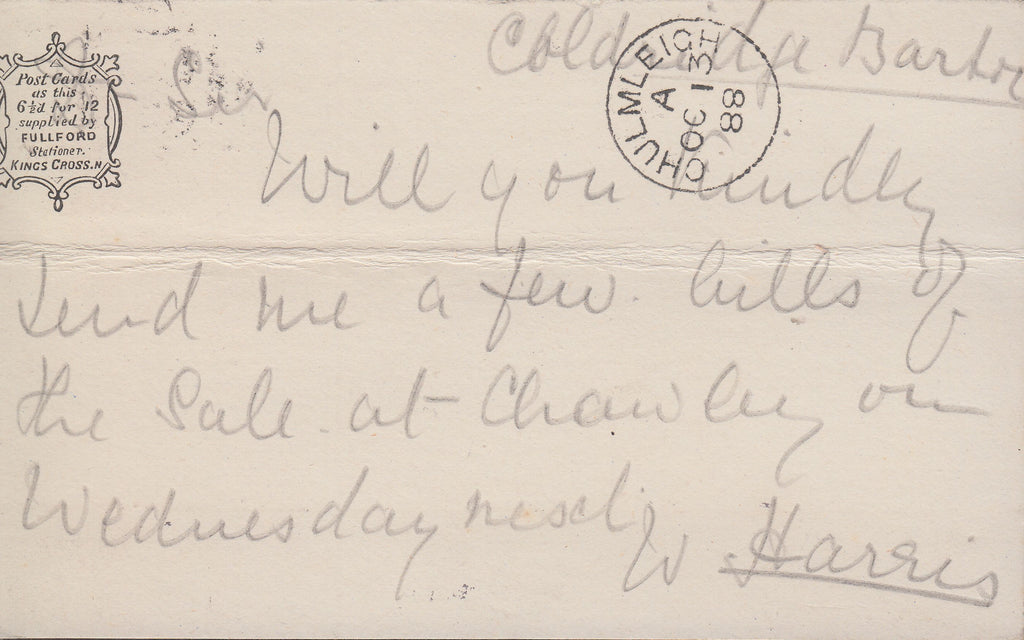 Coldridge Barton
Post Cards
as this
6½d for 12
supplied by
FULLFORD
Stationer.
KINGS CROSS.N
CHULMLEIGH
A
OC 13
88
Sir
Will you kindly
send me a few bills of
the Sale at Chawley on
Wednesday next
W Harris